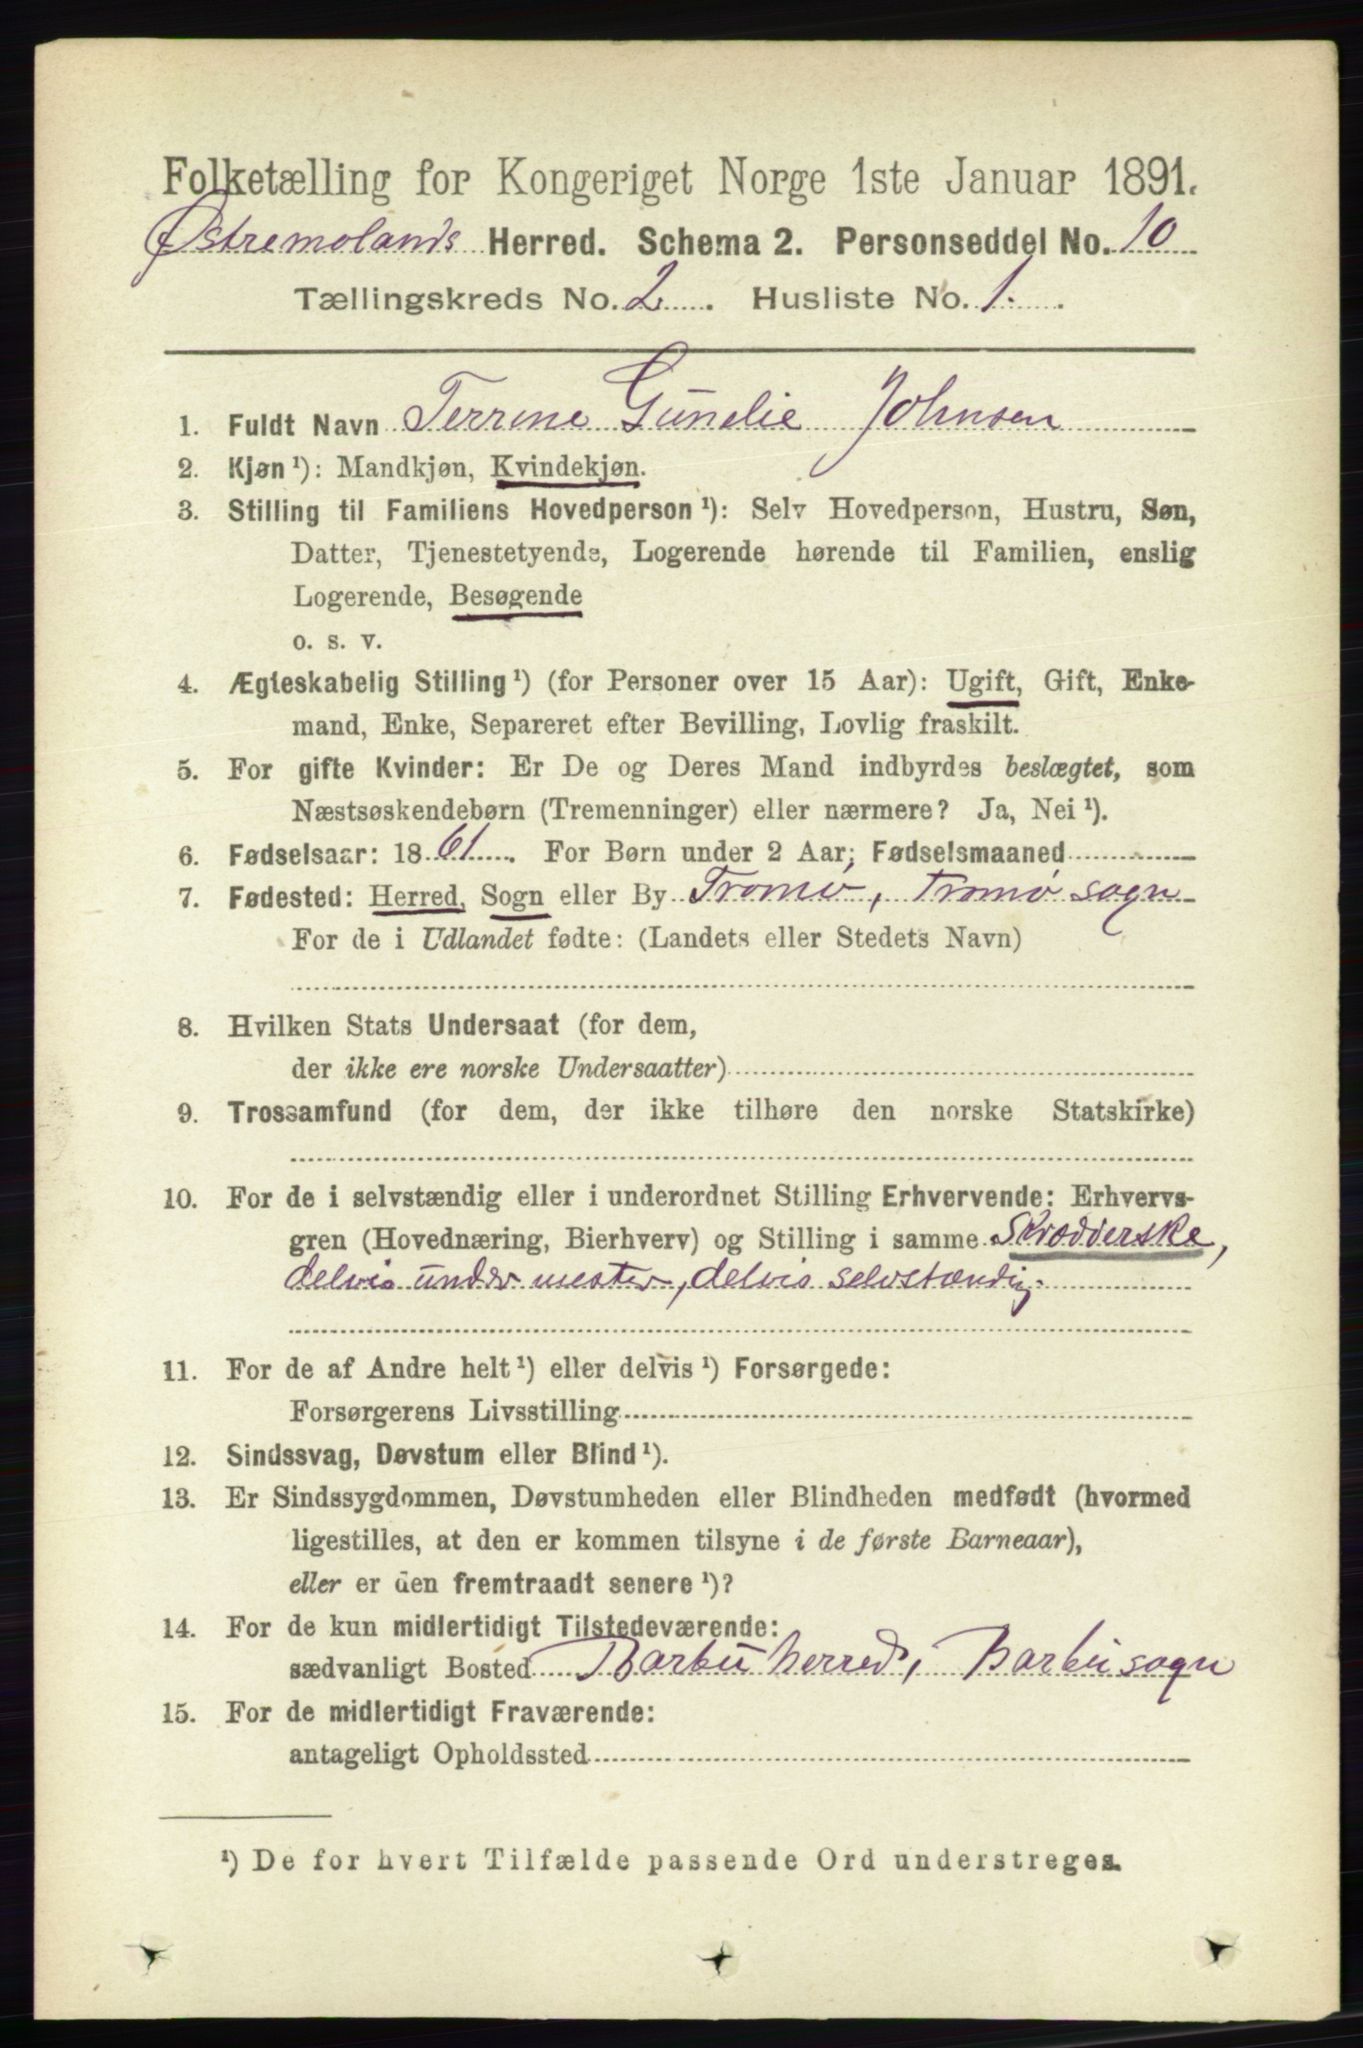 Folketælling for Kongeriget Norge 1ste Januar 1891.
Østremolands Herred. Schema 2. Personseddel No. 10
Tællingskreds No. 2. Husliste No. 1.
1. Fuldt Navn Terrine Gunelie Johnsen
2. Kjøn ¹): Mandkjøn, Kvindekjøn.
3. Stilling til Familiens Hovedperson ¹): Selv Hovedperson, Hustru, Søn,
Datter, Tjenestetyende, Logerende hørende til Familien, enslig
Logerende, Besøgende
o. s. v.
4. Ægteskabelig Stilling ¹) (for Personer over 15 Aar): Ugift, Gift, Enke-
mand, Enke, Separeret efter Bevilling, Lovlig fraskilt.
5. For gifte Kvinder: Er De og Deres Mand indbyrdes beslægtet, som
Næstsøskendebørn (Tremenninger) eller nærmere? Ja, Nei ¹).
6. Fødselsaar: 1861. For Børn under 2 Aar; Fødselsmaaned
7. Fødested: Herred, Sogn eller By Tromø, Tromø sogn
For de i Udlandet fødte: (Landets eller Stedets Navn)
8. Hvilken Stats Undersaat (for dem,
der ikke ere norske Undersaatter)
9. Trossamfund (for dem, der ikke tilhøre den norske Statskirke)
10. For de i selvstændig eller i underordnet Stilling Erhvervende: Erhvervs-
gren (Hovednæring, Bierhverv) og Stilling i samme Skrædderske,
delvis under mester, delvis selvstændig.
11. For de af Andre helt ¹) eller delvis ¹) Forsørgede:
Forsørgerens Livsstilling
12. Sindssvag, Døvstum eller Blind ¹).
13. Er Sindssygdommen, Døvstumheden eller Blindheden medfødt (hvormed
ligestilles, at den er kommen tilsyne i de første Barneaar),
eller er den fremtraadt senere ¹)?
14. For de kun midlertidigt Tilstedeværende:
sædvanligt Bosted Barbu herred, Barbu sogn
15. For de midlertidigt Fraværende:
antageligt Opholdssted
¹) De for hvert Tilfælde passende Ord understreges.